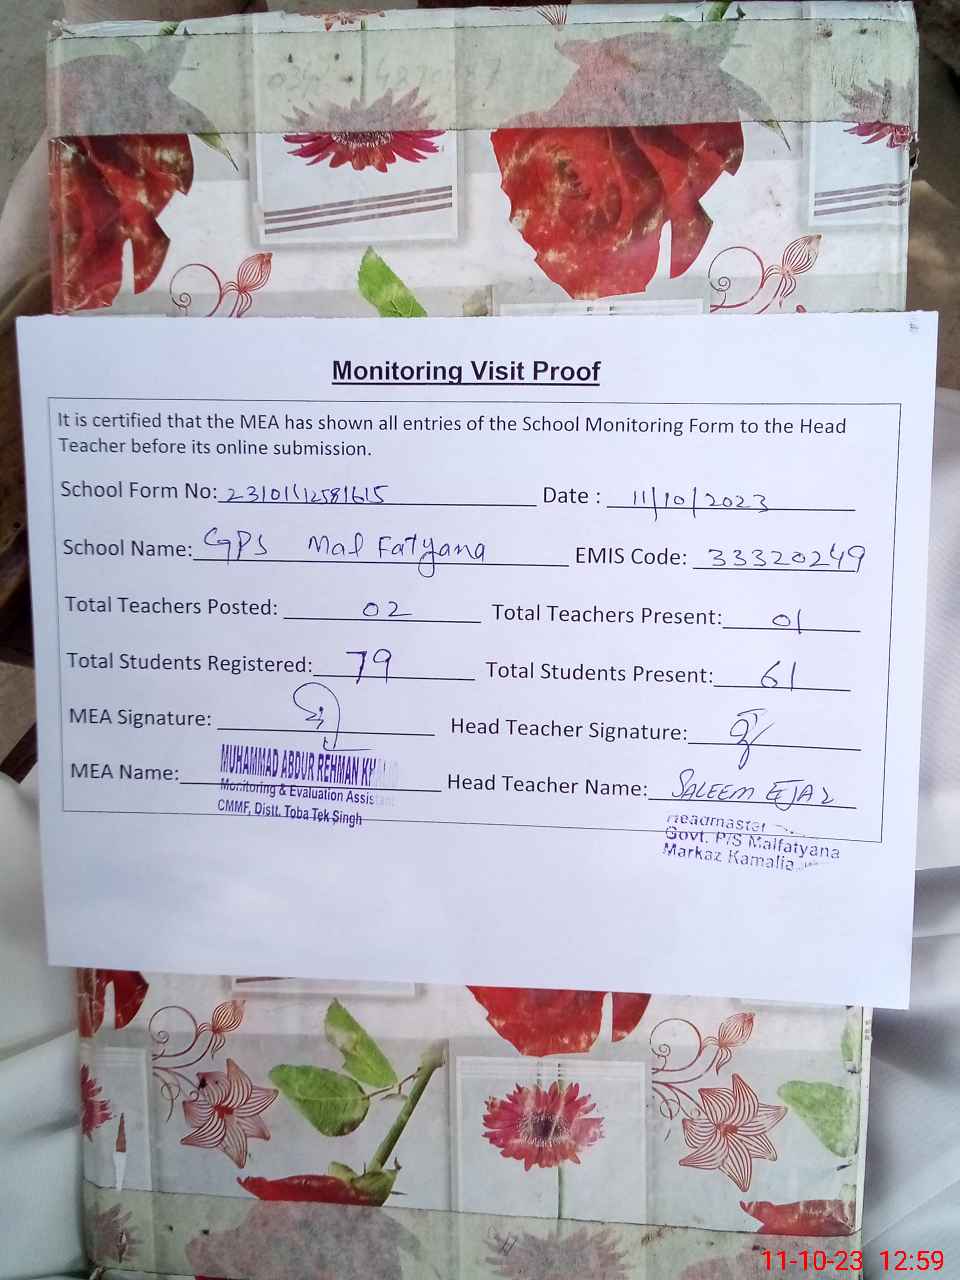 Monitoring Visit Proof
It is certified that the MEA has shown all entries of the School Monitoring Form to the Head
Teacher before its online submission.
School Form No: 23101112581615 Date : 11/10/2023
School Name: GPS Mal Fatyana EMIS Code: 33320249
Total Teachers Posted: 02 Total Teachers Present: 01
Total Students Registered: 79 Total Students Present: 61
MEA Signature: Head Teacher Signature:
MEA Name: MUHAMMAD ABDUR REHMAN Head Teacher Name: SALEEM EJAZ
Monitoring & Evaluation Assistant
CMMF, Distt. Toba Tek Singh
Headmaster
Govt. P/S Malfatyana
Markaz Kamalia
11-10-23 12:59